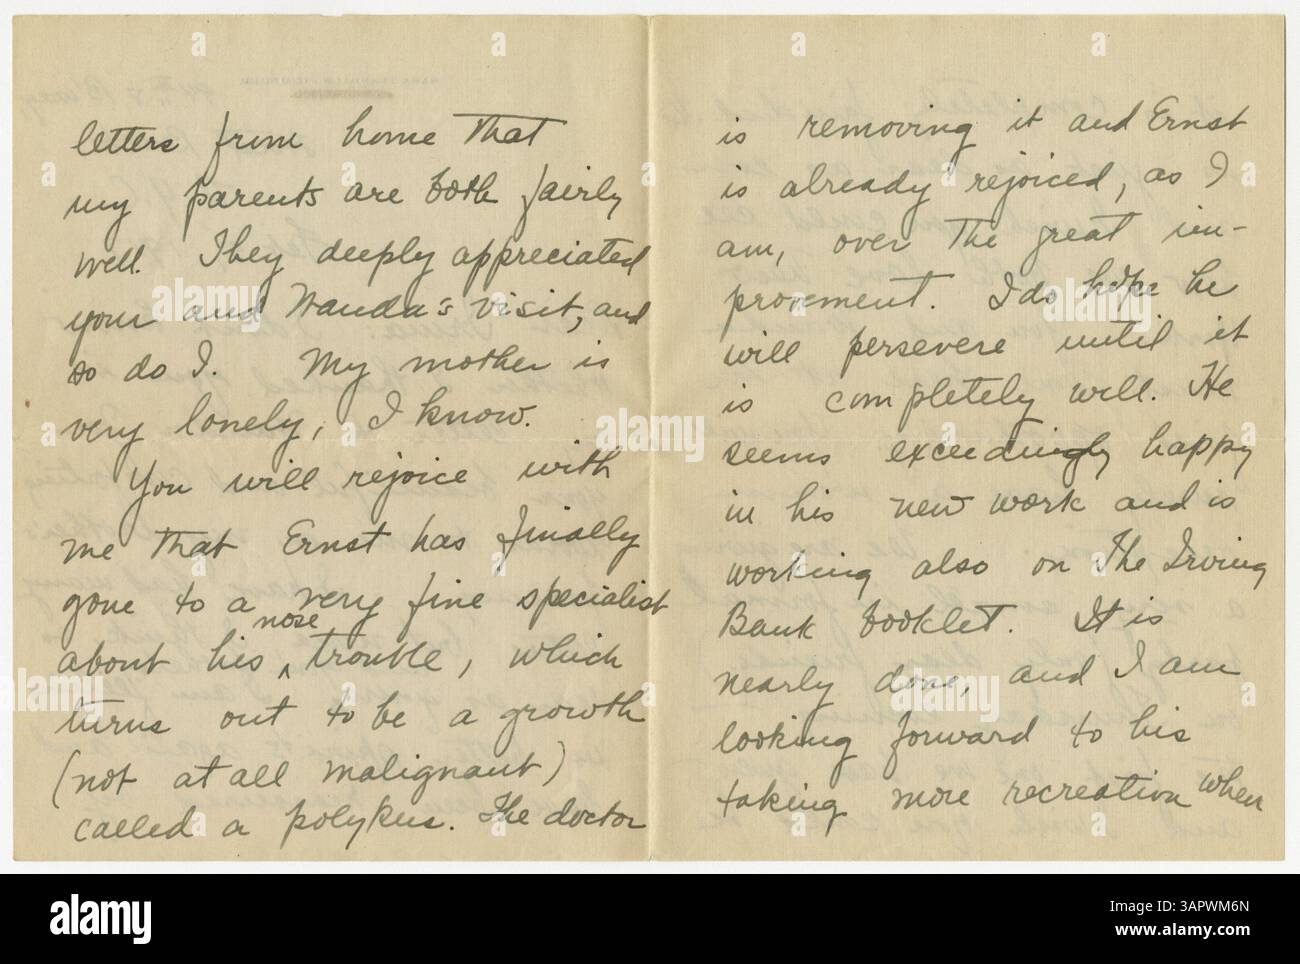 letters from home that
my parents are both fairly
well. They deeply appreciated
your and Wanda's visit, and
so do I. My mother is
very lonely, I know.
You will rejoice with
me that Ernst has finally
gone to a very fine specialist
about his ^nose trouble, which
turns out to be a growth
(not at all malignant)
called a polykus. The doctor
is removing it and Ernst
is already rejoiced, as I
am, over the great im-
provement. I do hope he
will persevere until it
is completely well. He
seems exceedingly happy
in his new work and is
working also on The Irving
Bank booklet. It is
nearly done, and I am
looking forward to his
taking more recreation when
alamy
Image ID: 3APWM6N
www.alamy.com